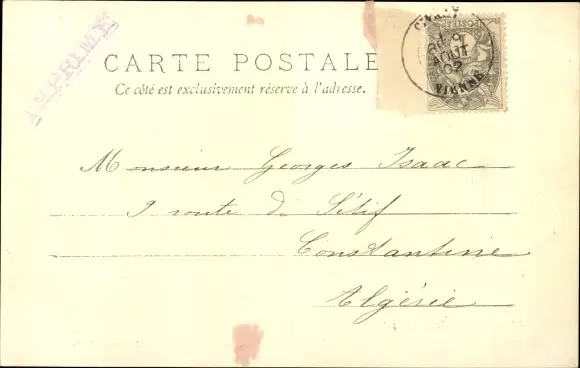 IMPRIMÉ
CARTE POSTALE
Ce côté est exclusivement réservé à l'adresse.
AOUT
02
VIENNE
POSTES
Monsieur Georges Isaac
9 route de Sétif
Constantine
Algérie